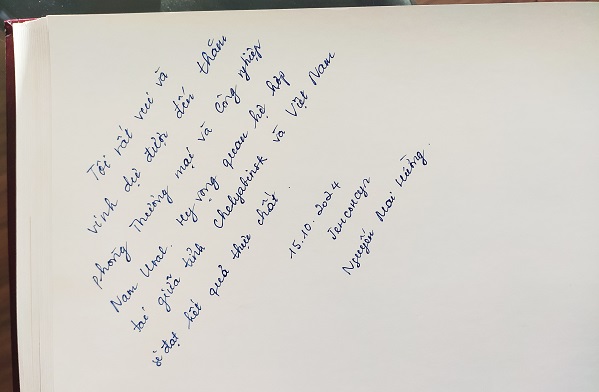 Tôi rất vui và
vinh dự được đến thăm
phòng Thương mại và công nghiệp
Nam Ural. Hy vọng quan hệ hợp
tác giữa tỉnh chelyabinsk và Việt Nam
sẽ đạt kết quả thực chất.
15.10.2024
Генсмаул
Nguyễn Mai Hường.